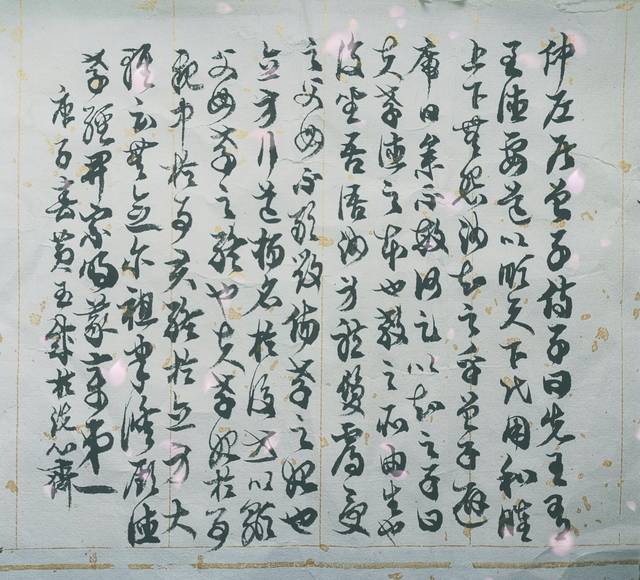 仲尼居曾子侍子曰先王有
至德要道以順天下民用和睦
上下無怨汝知之乎曾子避
席曰參不敏何足以知之子曰
夫孝德之本也教之所由生也
復坐吾語汝身體髮膚受
之父母不敢毀傷孝之始也
立身行道揚名於後世以顯
父母孝之終也夫孝始於事
親中於事君終於立身大
雅云無念尔祖聿脩厥德
孝經開宗明義章第一
庚子春黃玉於洗心齋